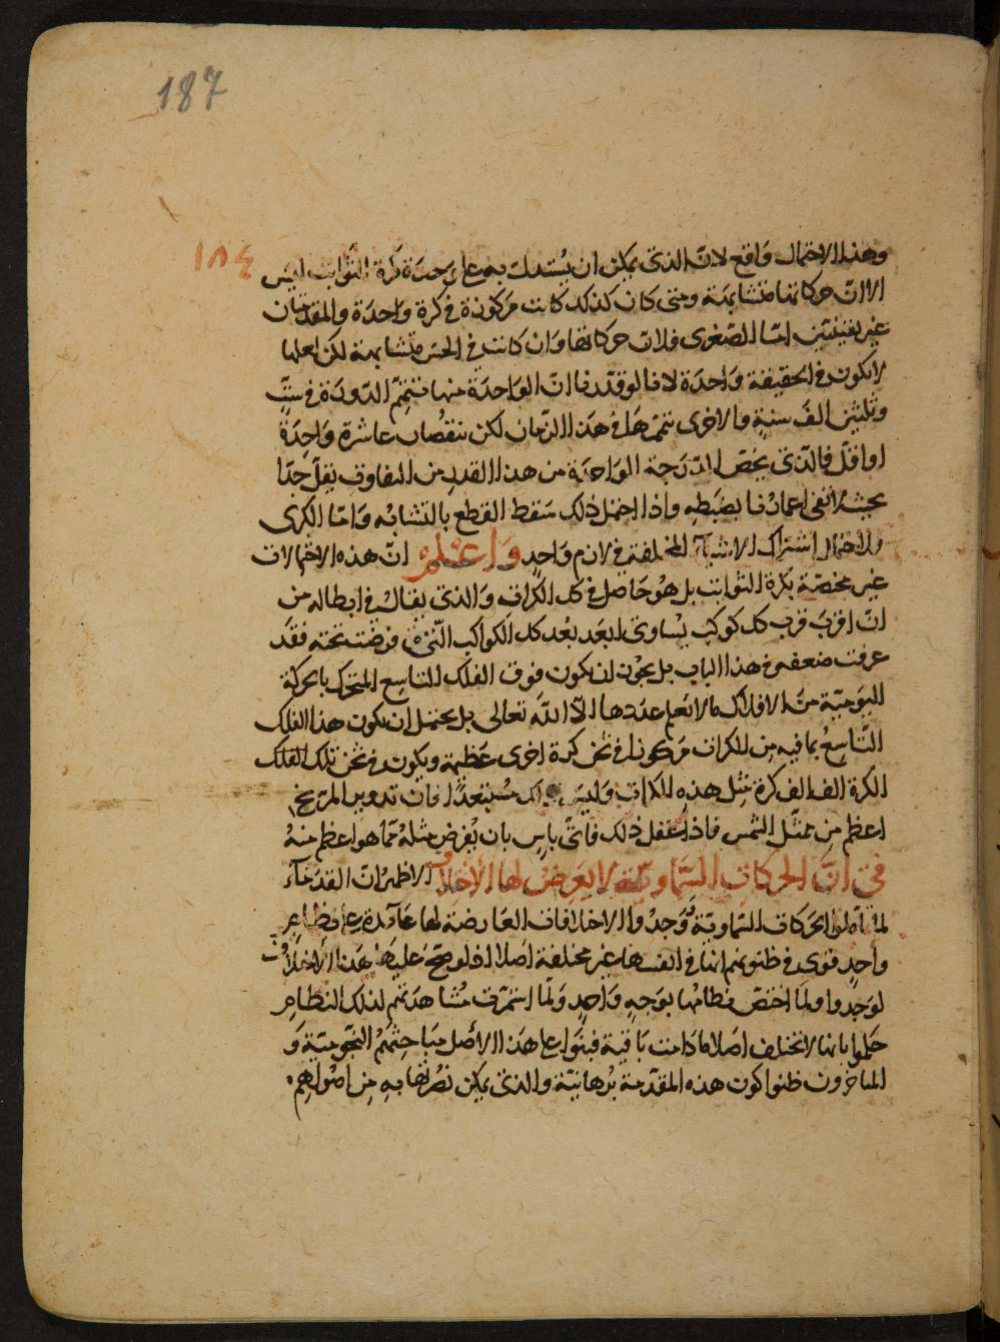 187
١٨٤
وهذا الاحتمال واقع لانّ الذى يمكن ان يستدل به على وحدة كرة الثوابت ليس
الا انّ حركاتها متشابهة ومتى كان كذلك كانت مركوزة فى كرة واحدة والمقدمتان
غير يقينيتين امّا الصغرى فلان حركاتها وان كانت فى الحس متشابهة لكن لعلها
لا تكون فى الحقيقة واحدة لانا لو قدّرنا انّ الواحدة منها تتمّم الدورة فى ستّ
وثلثين الف سنة والاخرى تتمّها فى هذا الزمان لكن بنقصان عاشرة واحدة
او اقلّ فالذى يخصّ الدّرجة الواحدة من هذا القدر من التفاوت يقلّ جدّا
بحيث لا تفى اعمارنا بضبطه واذا احتمل ذلك سقط القطع بالتشابه وامّا الكبرى
فلاحتمال اشتراك الاشيآء المختلفة فى لازم واحد واعلم انّ هذه الاحتمالات
غير مختصّة بكرة الثوابت بل هو حاصل فى كل الكرات والذى يقال فى ابطاله من
انّ اقرب قرب كل كوكب يساوى ابعد بعد كل الكواكب التى فرضت تحته فقد
عرفت ضعفه فى هذا الباب بل يجوز ان يكون فوق الفلك التاسع المتحرك بالحركة
اليوميّة من الافلاك ما لا يعلم عددها الّا الله تعالى بل يحتمل ان يكون هذا الفلك
التّاسع بما فيه من الكرات مركوزا فى ثخن كرة اخرى عظيمة ويكون فى ثخن تلك الفلك
الكرة الف الف كرة مثل هذه الكرات وليس ذلك مستبعدًا فان تدوير المرّيخ
اعظم من ممثّل الشمس فاذا عقل ذلك فاىّ باس بان يفرض مثله ممّا هو اعظم منه
فى انّ الحركات السّماويّة لا يعرض لها الاختلاف الاظهر انّ القدمآء
لما تأملوا الحركات السّماويّة ووجدوا الاختلافات العارضة لها عآئدة على نظام
واحد قوى فى ظنونهم انها فى انفسها غير مختلفة اصلا اذ لو صحّ عليها هذا الاختلاف
لوجدوا ولما اختصّ نظامها بوجه واحد ولمّا استمرّت مشاهدتهم لذلك النظام
حكموا بانها لا تختلف اصلا ما دامت باقية فبنوا على هذا الاصل مباحثهم النجوميّة و
المتاخرون ظنوا كون هذه المقدّمة برهانيّة والذى يمكن نصرتها به من اصولهم